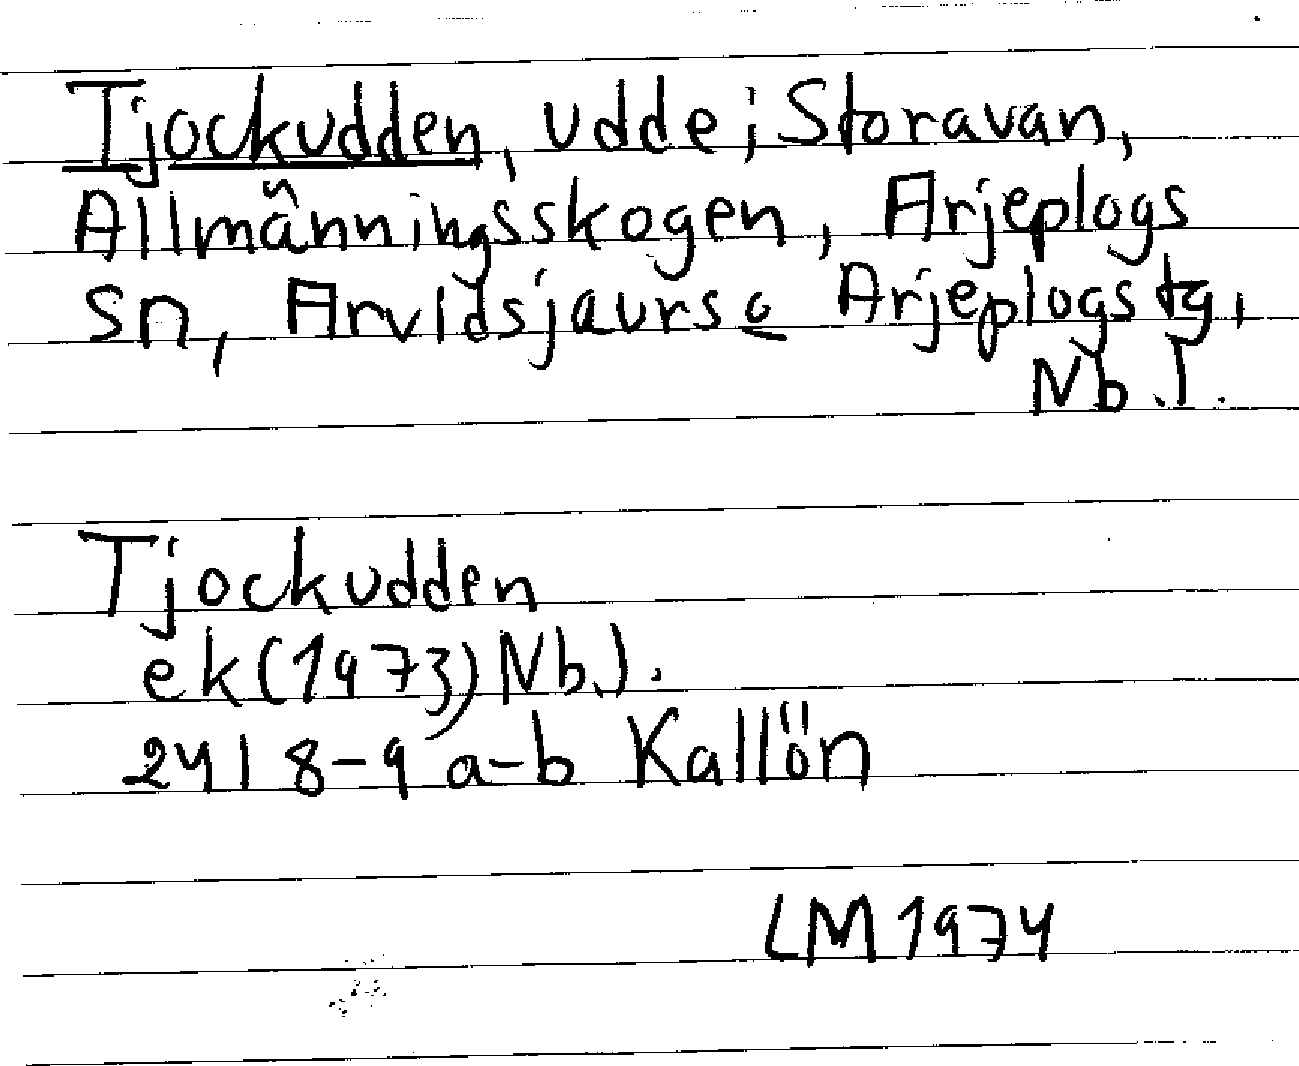 Tjockudden, udde i Storavan,
Allmänningsskogen, Arjeplogs
sn, Arvidsjaurs o Arjeplogs tg,
Nb.l.
Tjockudden
ek(1973)Nb.l.
24I 8-9 a-b Kallön
LM 1974